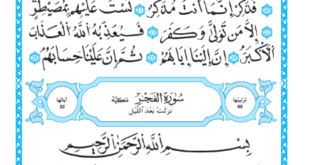 فَذَكِّرْ إِنَّمَا أَنتَ مُذَكِّرٌ لَّسْتَ عَلَيْهِم بِمُصَيْطِرٍ
إِلَّا مَن تَوَلَّىٰ وَكَفَرَ فَيُعَذِّبُهُ اللَّهُ الْعَذَابَ
الْأَكْبَرَ إِنَّ إِلَيْنَا إِيَابَهُمْ ثُمَّ إِنَّ عَلَيْنَا حِسَابَهُم
ترتيبها سُورَةُ الفَجْرِ مَكِّيَّة آياتها
89 نزلت بعد الليل 32
بِسْمِ اللَّهِ الرَّحْمَٰنِ الرَّحِيمِ